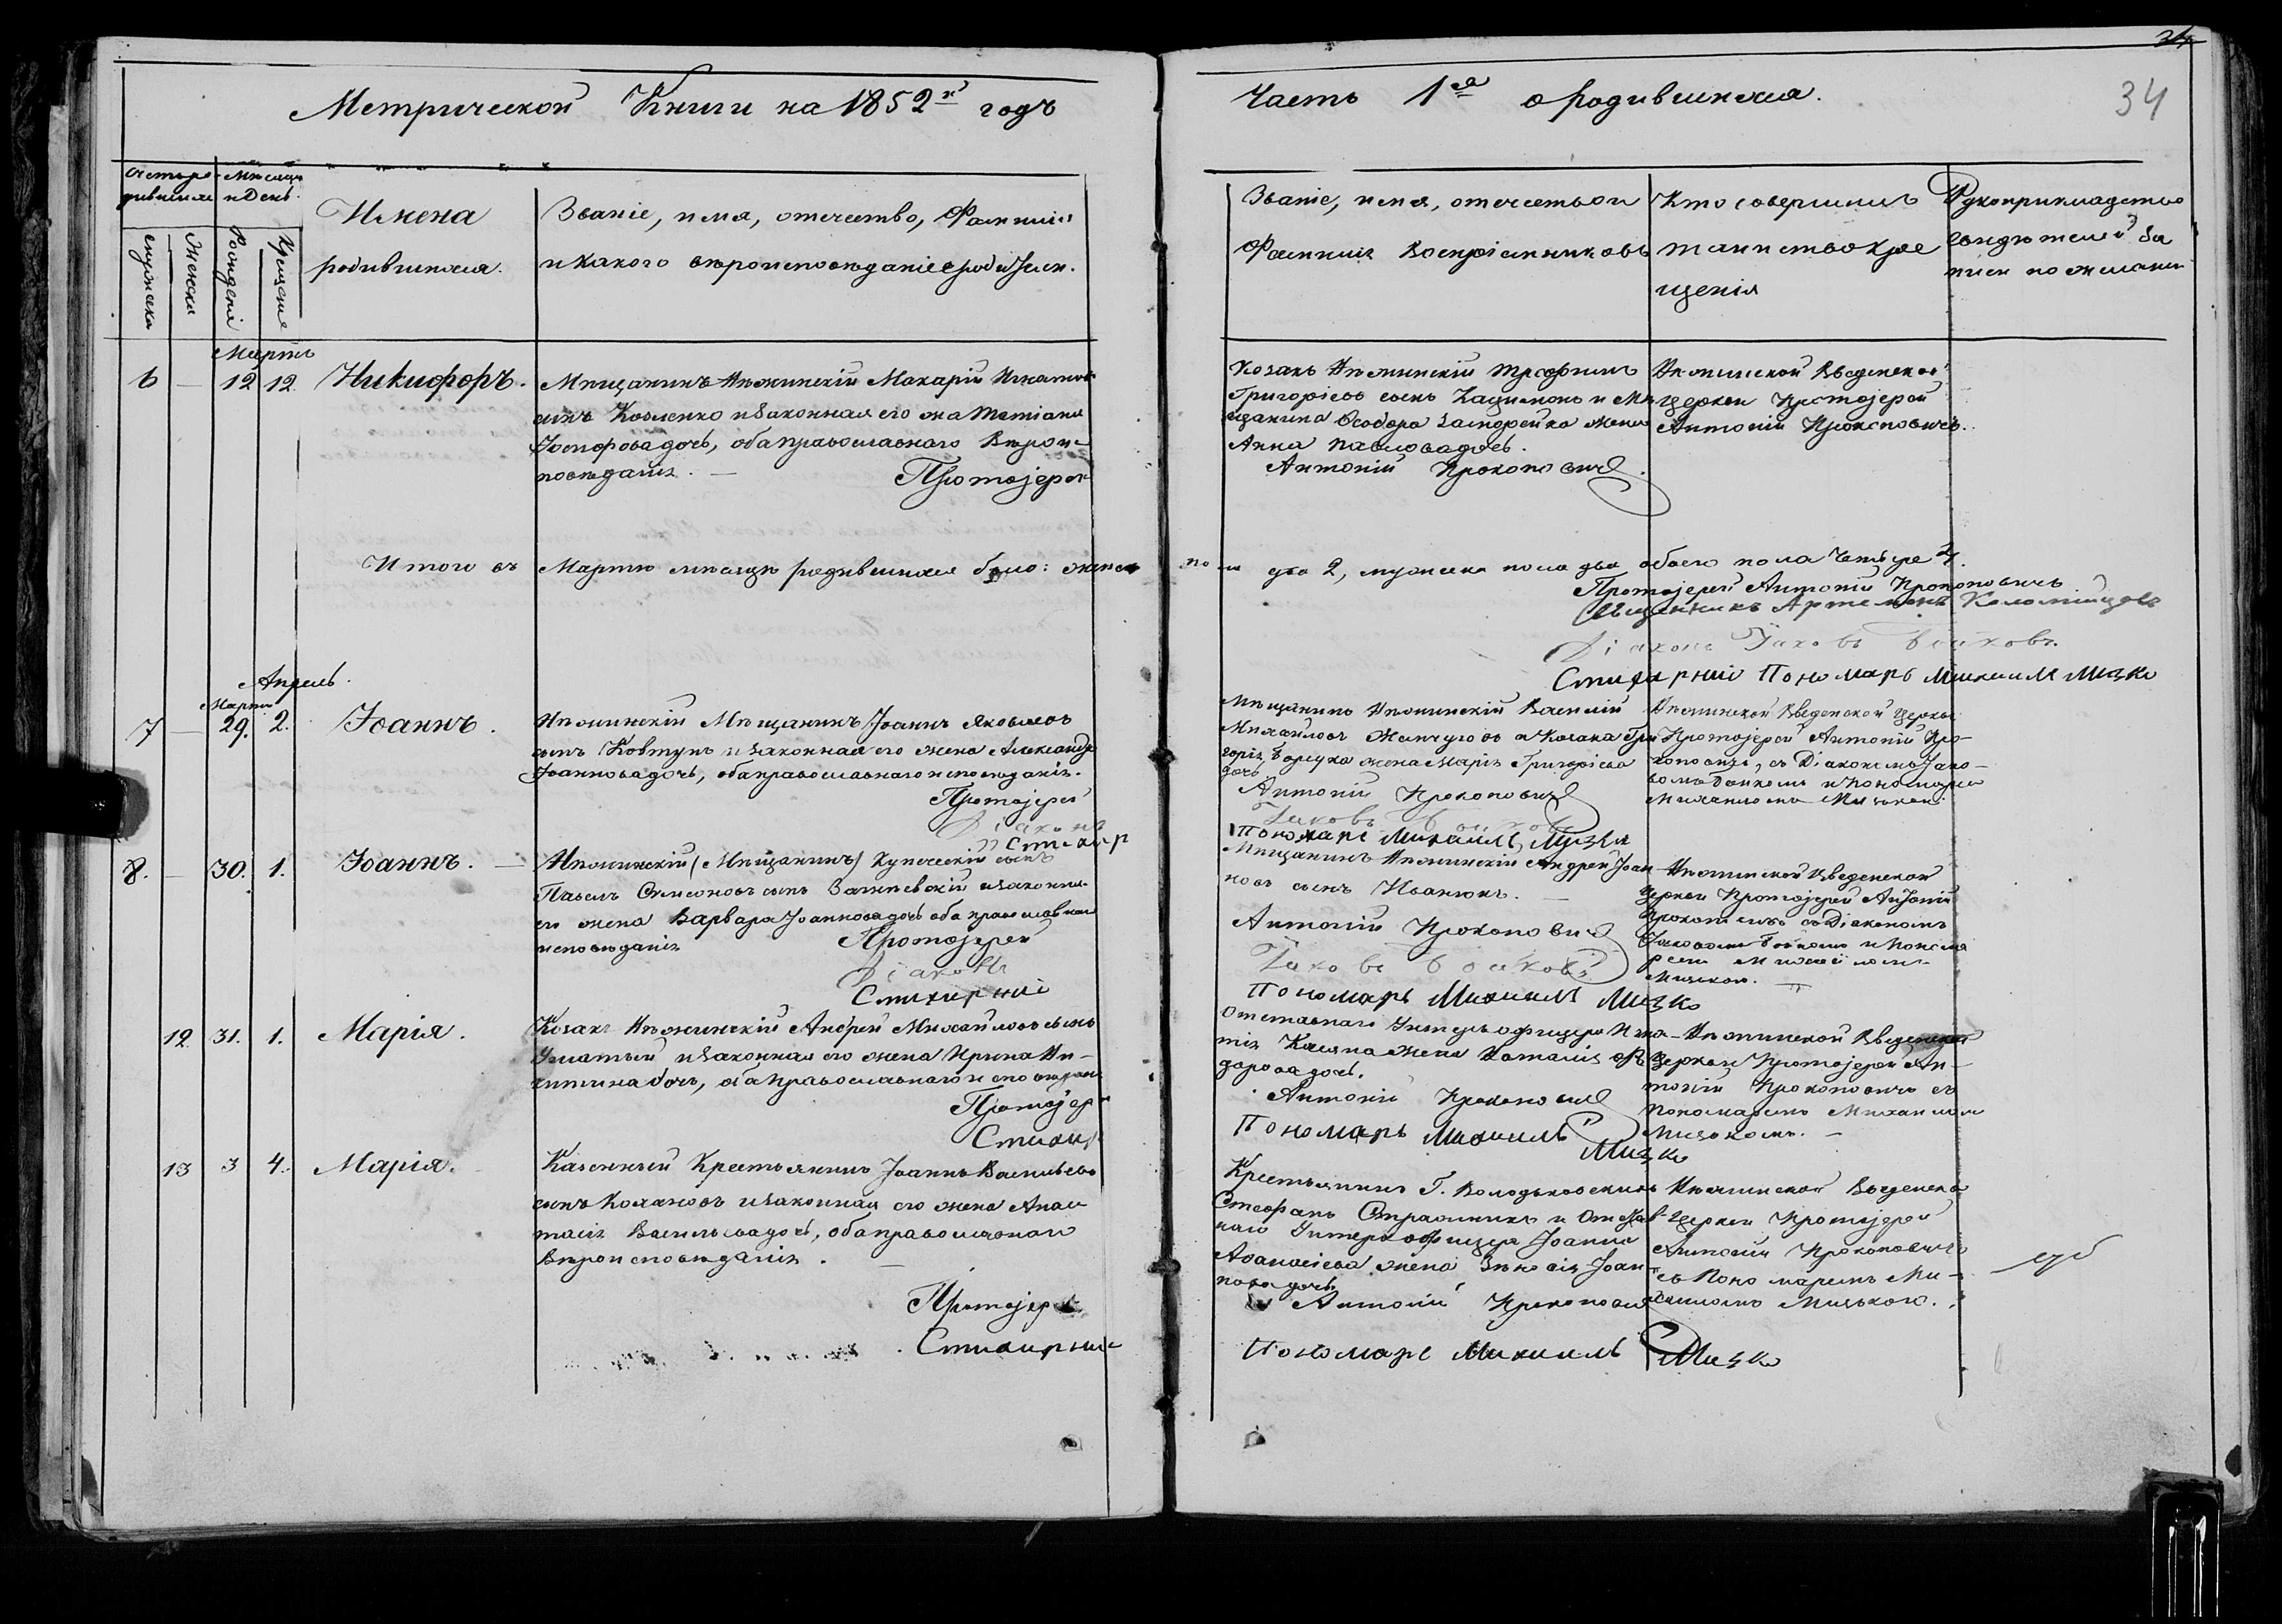 34
Метрической Книги на 1852й годъ
Часть 1я о родившихся.
34
Счетъ родившихся
Мѣсяцъ и День.
мужеска
женска
Рожденія
Крещенія
Имена
родившихся.
Званіе, имя, отчество, Фамилія
и какого вѣроисповѣданіе родители.
Званіе, имя, отчество и
Фамилія Воспріемниковъ
Кто совершилъ
таинство кре
щенія
Рукоприкладство
свидѣтелей за
писи по желанію
Мартъ
6 — 12 12 Никифоръ.
Мѣщанинъ Нѣжинскій Макарій Игнатовъ
сынъ Коваленко и законная его жена Татіана
Іосифова дочь, оба православнаго вѣроис-
повѣданія. —
Протоіерей
Козакъ Нѣжинскій Трофимъ
Григоріевъ сынъ и Мѣ
щанина Ѳеодора жена
Анна Павлова дочь.
Антоній Прокоповичъ
Нѣжинской Введенской
церкви Протоіерей
Антоній Прокоповичъ.
Итого въ Мартѣ мѣсяцѣ родившихся было: женска
пола два 2, мужеска пола два обоего пола четыре 4.
Протоіерей Антоній Прокоповичъ
Священникъ Артемонъ Коломійцовъ
Діаконъ Іаковъ Бойковъ.
Стихарный Пономарь Михаилъ Мизко
Апрель.
Мартъ
7 — 29. 2. Іоаннъ.
Нѣжинскій Мѣщанинъ Іоаннъ Яковлевъ
сынъ Ковтунъ и законная его жена Александра
Іоаннова дочь, оба православнаго исповѣданія.
Протоіерей
Діаконъ
Стихар
Мѣщанинъ Нѣжинскій Василій
Михайловъ и Козака Гри
горія жена Марія Григоріева
дочь
Антоній Прокоповичъ
Іаковъ Бойковъ
Пономарь Михаилъ Мизко
Нѣжинской Введенской Церкви
Протоіерей Антоній Про-
коповичъ, съ Діакономъ Іако-
вомъ Бойкомъ и Пономаремъ
Михаиломъ Мизкомъ.
8. — 30. 1. Іоаннъ. —
Нѣжинскій (Мѣщанинъ) Купеческій сынъ
Павелъ Симеоновъ сынъ и законная
его жена Варвара Іоаннова дочь оба православнаго
исповѣданія
Протоіерей
Діаконъ
Стихарный
Мѣщанинъ Нѣжинскій Андрей Іоан-
новъ сынъ Иванюкъ. —
Антоній Прокоповичъ
Іаковъ Бойковъ
Пономарь Михаилъ Мизко
Нѣжинской Введенской
Церкви Протоіерей Антоній
Прокоповичъ съ Діакономъ
Іаковомъ Бойкомъ и Понома
ремъ Михаиломъ
Мизкомъ. —
12. 31. 1. Марія.
Козакъ Нѣжинскій Андрей Михайловъ сынъ
и законная его жена Ирина Ни-
китина дочь, оба православнаго исповѣданія
Протоіерей
Стихар
Отставнаго Унтеръ офицера Игна-
тія жена Наталія Ѳе
дорова дочь.
Антоній Прокоповичъ
Пономарь Михаилъ
Мизко
Нѣжинской Введенской
Церкви Протоіерей Ан-
тоній Прокоповичъ съ
Пономаремъ Михаиломъ
Мизькомъ. —
13 3 4. Марія.
Казенный Крестьянинъ Іоаннъ Васильевъ
сынъ Кохановъ и законная его жена Анас
тасія Васильева дочь, оба православнаго
вѣроисповѣданія. —
Протоіерей
Стихарный
Крестьянинъ Г.
Стефанъ и Отстав
наго Унтеръ офицера Іоанна
Аѳанасіева жена Іоан
нова дочь.
Антоній Прокоповичъ
Пономарь Михаилъ Мизко
Нѣжинской Введенской
Церкви Протоіерей
Антоній Прокоповичъ
съ Пономаремъ Ми-
хаиломъ Мизькою.